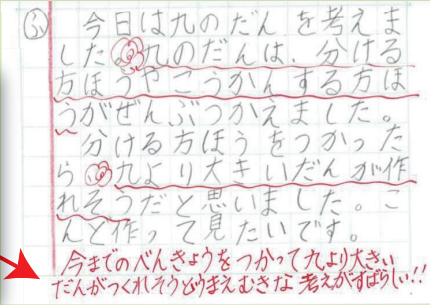 ふ 今日は九のだんを考えま
した。九のだんは、分ける
方ほうやこうかんする方ほ
うがぜんぶつかえました。
分ける方ほうをつかった
ら九より大きいだんが作
れそうだと思いました。こ
んど作って見たいです。
今までのべんきょうをつかって九より大きい
だんがつくれそうとうまえむきな考えがすばらしい!!